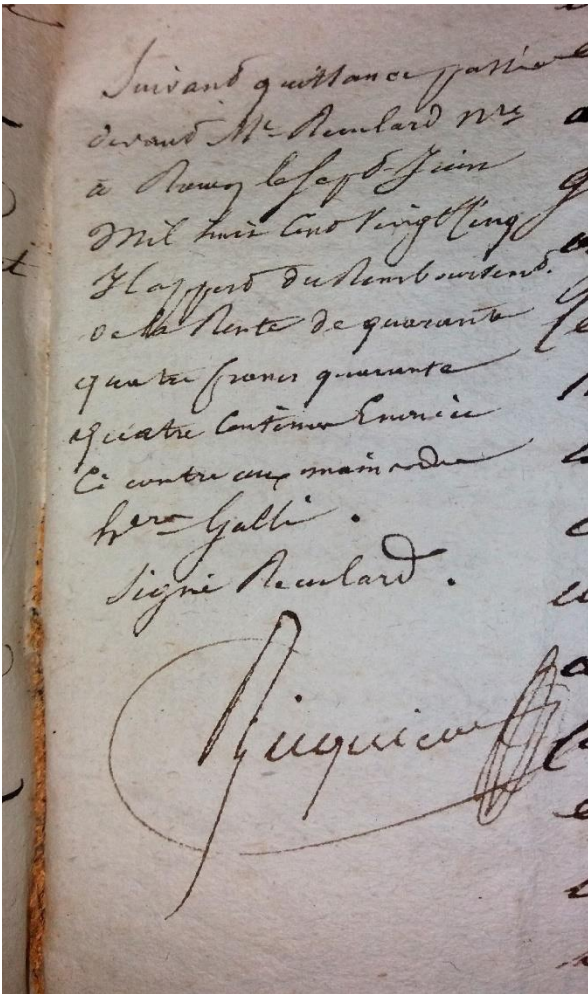 Suivant quittance passée
devant Me Reculard nre
à Rouen le sept Juin
mil huit cent vingt cinq
Il appert du Remboursemt
de la Rente de quarante
quatre francs quarante
quatre Centimes Enoncée
Ci contre aux mains des
hers Gallé.
Signé Reculard.